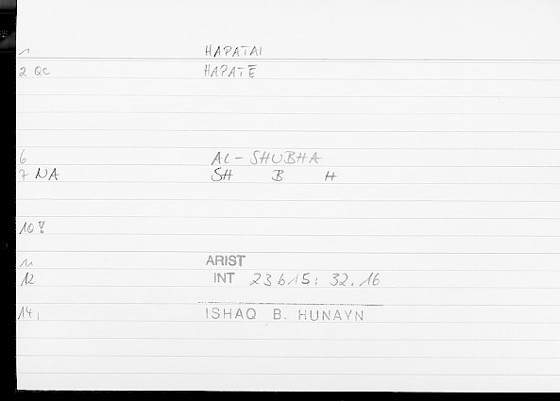 1 HAPATAI
2 QC HAPATE
6 AL-SHUBHA
7 NA SH B H
10
11 ARIST
12 INT 23b15: 32.16
14 ISHAQ B. HUNAYN